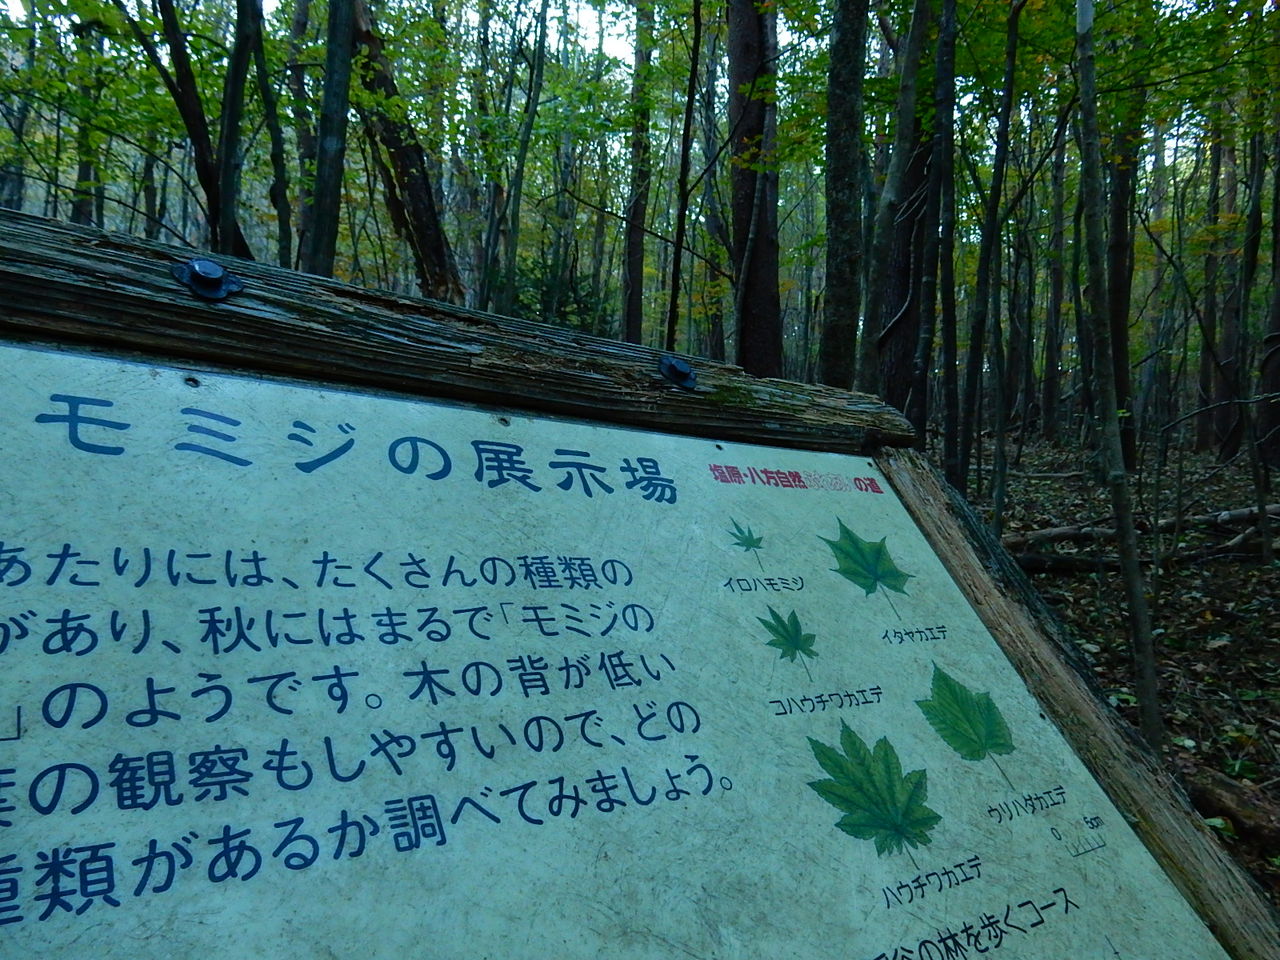 モミジの展示場
塩原・八方自然ふれあいの道
あたりには、たくさんの種類の
があり、秋にはまるで「モミジの
」のようです。木の背が低い
の観察もしやすいので、どの
種類があるか調べてみましょう。
イロハモミジ
イタヤカエデ
コハウチワカエデ
ウリハダカエデ
0 5cm
ハウチワカエデ
の林を歩くコース